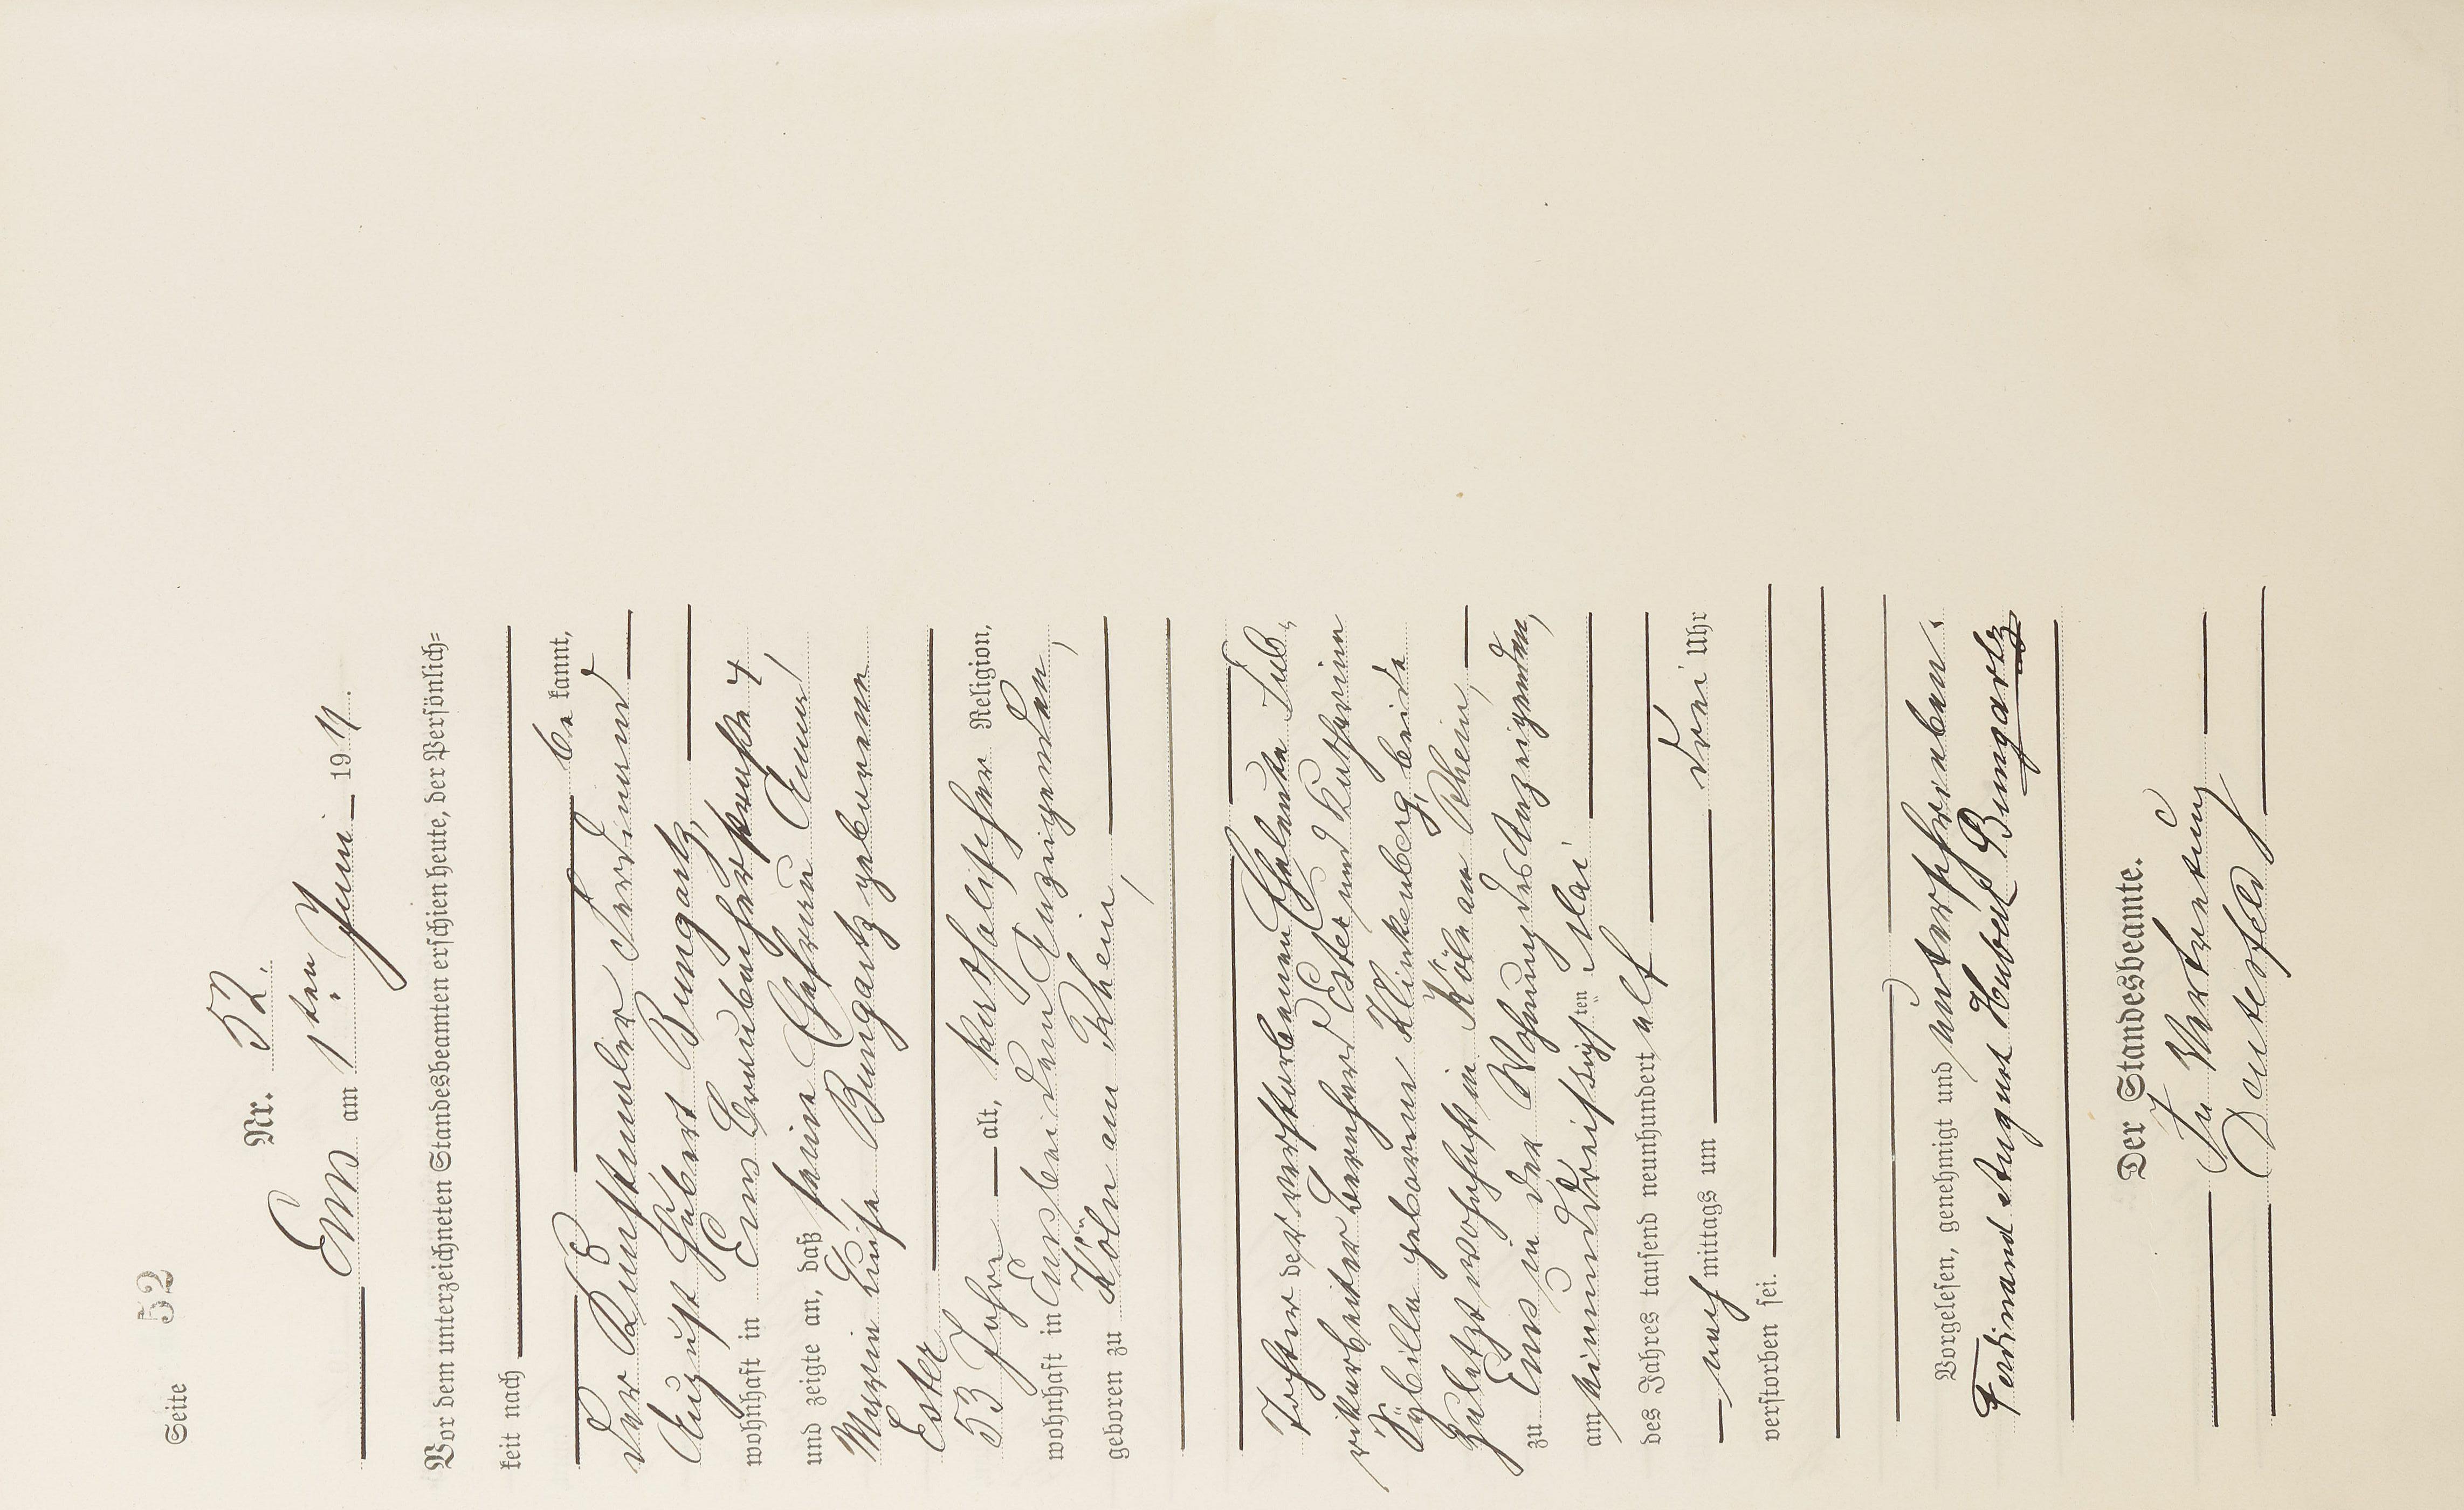 Seite 52
Nr. 52.
Ems am 1ten Juni 1911.
Vor dem unterzeichneten Standesbeamten erschien heute, der Persönlich-
keit nach
be kannt,
der Kunstmaler Ferdinand
August Hubert Bungartz,
wohnhaft in Ems Braubacherstraße 4,
und zeigte an, daß seine Ehefrau Anna
Maria Luise Bungartz geborene
Ester
53 Jahre alt, katholischer Religion,
wohnhaft in Ems bei dem Anzeigenden,
geboren zu Köln am Rhein,
Tochter der verstorbenen Eheleute Fab-
rikarbeiter Bernhard Ester und Katharina
Sybilla geborene Klinkenberg, beide
zuletzt wohnhaft in Köln am Rhein,
zu Ems in der Wohnung des Anzeigenden,
am einunddreißigsten Mai
des Jahres tausend neunhundert elf
nach mittags um drei Uhr
verstorben sei.
Vorgelesen, genehmigt und unterschrieben.
Ferdinand August Hubert Bungartz
Der Standesbeamte.
In Vertretung